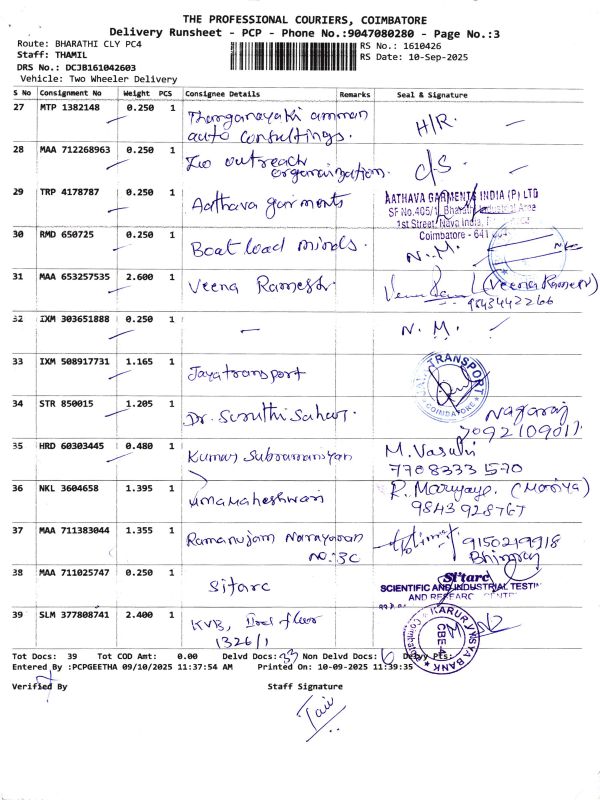 THE PROFESSIONAL COURIERS, COIMBATORE
Delivery Runsheet - PCP - Phone No.:9047080280 - Page No.:3
Route: BHARATHI CLY PC4
RS No.: 1610426
Staff: THAMIL
RS Date: 10-Sep-2025
DRS No.: DCJB161042603
Vehicle: Two Wheeler Delivery
S No Consignment No Weight PCS Consignee Details Remarks Seal & Signature
27 MTP 1382148 0.250 1 Thanganayaki amman H/R. —
auto consultings.
28 MAA 712268963 0.250 1 outreach C/S. —
organization.
29 TRP 4178787 0.250 1 Aathava garments
AATHAVA GARMENTS INDIA (P) LTD
SF No.405/1, Bharathi Industrial Area
1st Street, Nava India,
Coimbatore - 641
30 RMD 650725 0.250 1 Boat load minds. N.M.
31 MAA 653257535 2.600 1 Veena Ramesh. (Veena Ramesh)
9843442266
32 IXM 303651888 0.250 1 — N.M.
33 IXM 508917731 1.165 1 Jayatransport
TRANSPORT
COIMBATORE
34 STR 850015 1.205 1 Dr. Sahar. Nagaraj
7092109011
35 HRD 60303445 0.480 1 Kumar Subramanyan M. Vasuki
7708333 1570
36 NKL 3604658 1.395 1 Umamaheshwari R. (Mariya)
9843928767
37 MAA 711383044 1.355 1 Ramanujam Narayanan 9150219918
NO: 3C
38 MAA 711025747 0.250 1 Sitarc
Si'tarc
SCIENTIFIC AND INDUSTRIAL TESTIN
AND RESEARC CENTRE
39 SLM 377808741 2.400 1 KVB, floor
1326/1
KARUR VYSYA BANK
CBE-4
Tot Docs: 39 Tot COD Amt: 0.00 Delvd Docs: 33 Non Delvd Docs: 6 Delvy Pts:
Entered By :PCPGEETHA 09/10/2025 11:37:54 AM Printed On: 10-09-2025 11:39:35
Verified By Staff Signature